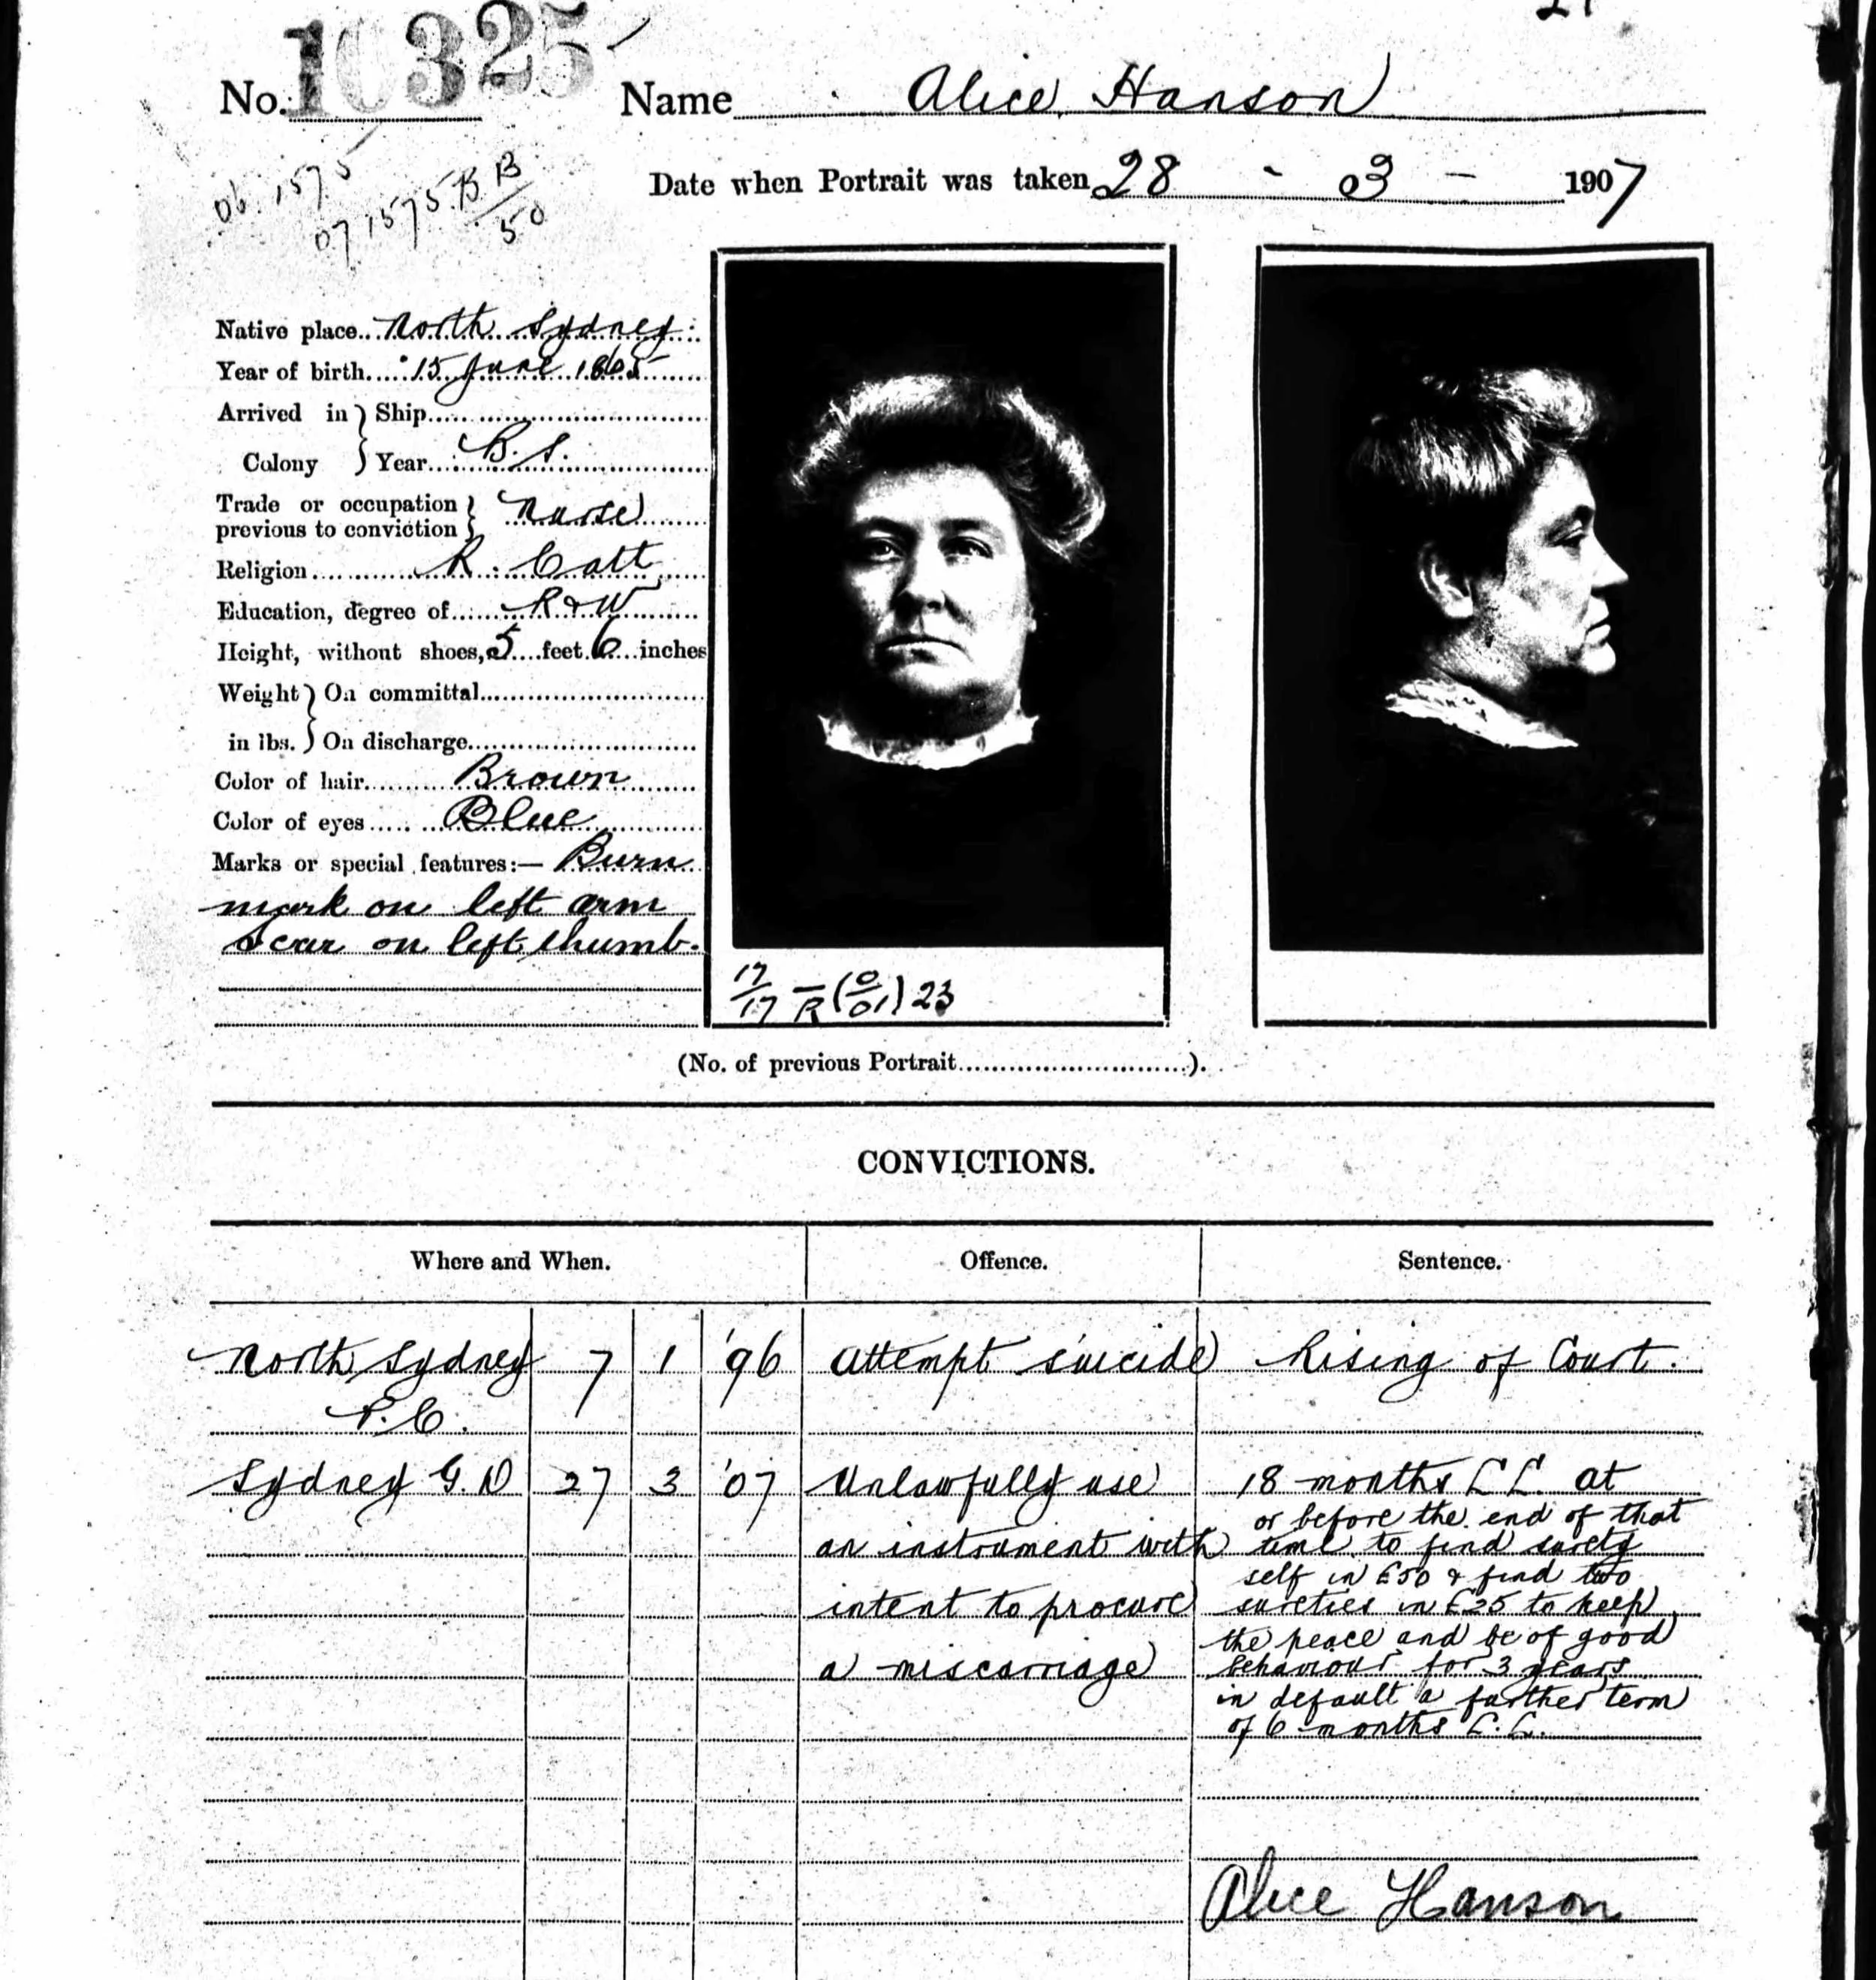 No. 10325 Name Alice Hanson
06 1575
07 1575 B B/50
Date when Portrait was taken 28 - 03 - 1907
Native place North Sydney
Year of birth 15 June 1865
Arrived in Colony } Ship
Year B. S.
Trade or occupation previous to conviction } Nurse
Religion R. Cath
Education, degree of R & W
Height, without shoes, 5 feet 6 inches
Weight in lbs. } On committal
On discharge
Color of hair Brown
Color of eyes Blue
Marks or special features:— Burn
mark on left arm
Scar on left thumb.
17/17 —/R (0/01) 23
(No. of previous Portrait ).
CONVICTIONS.
Where and When. Offence. Sentence.
North Sydney 7 1 '96 Attempt suicide Rising of Court.
P.C.
Sydney G.D 27 3 '07 Unlawfully use 18 months L L. at
or before the end of that
an instrument with time to find surety
self in £50 & find two
intent to procure sureties in £25 to keep
the peace and be of good
a miscarriage behaviour for 3 years
in default a further term
of 6 months L. L.
Alice Hanson